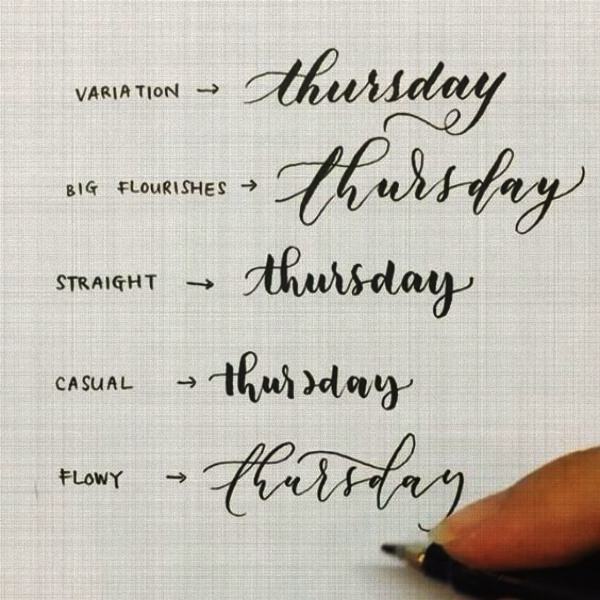 VARIATION → thursday
BIG FLOURISHES → thursday
STRAIGHT → thursday
CASUAL → thursday
FLOWY → thursday